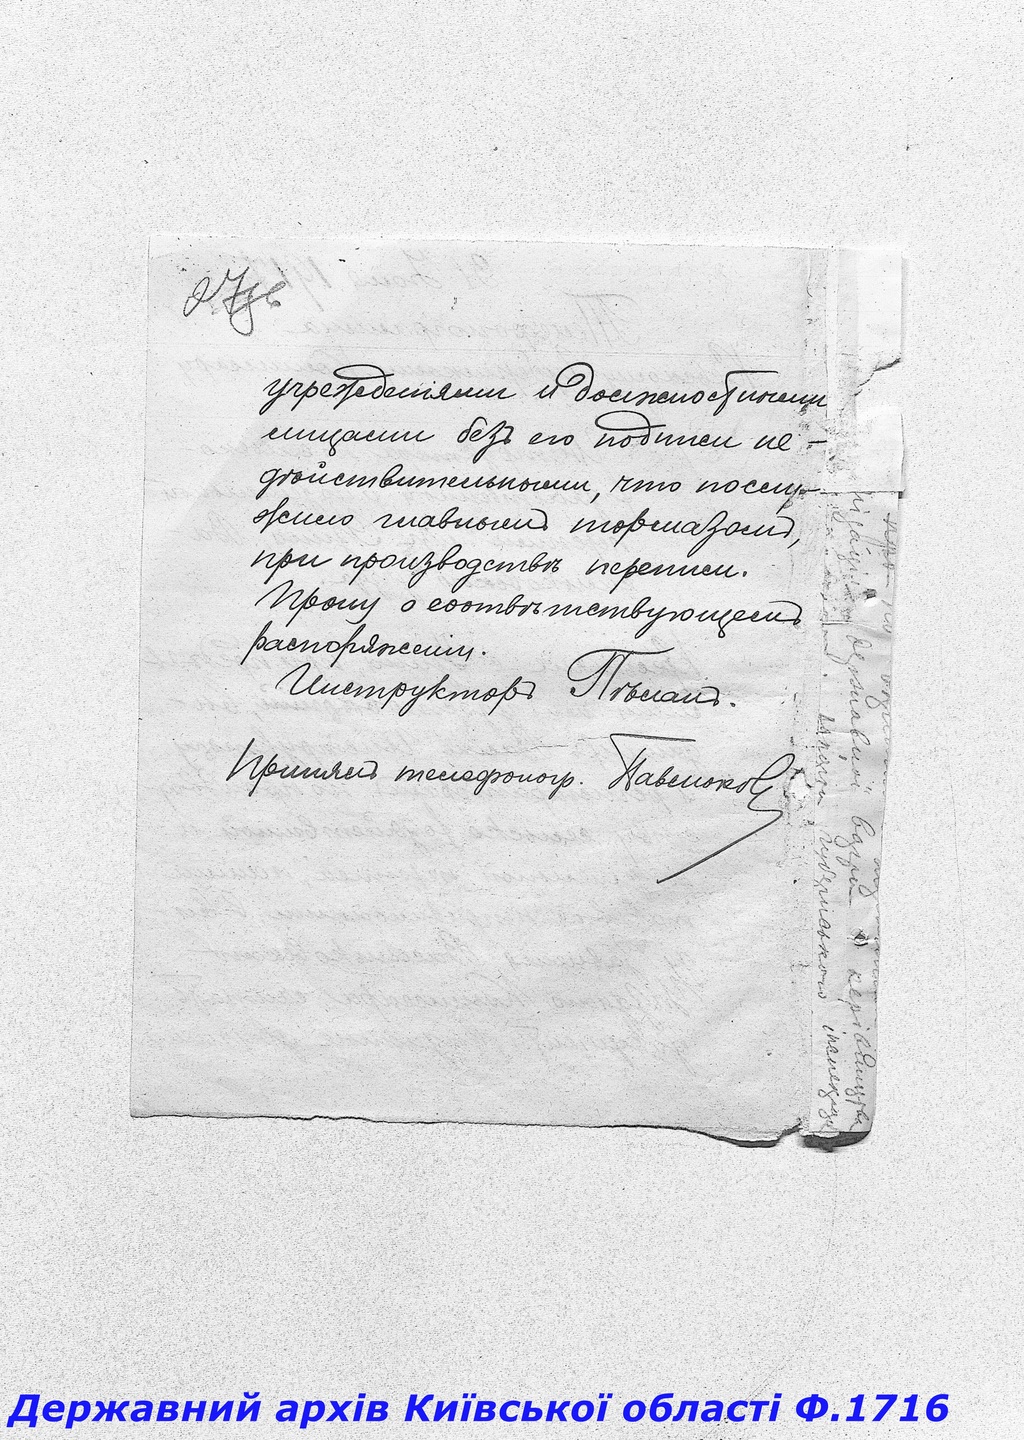 27 зв
учрежденіями и должностными
лицами безъ его подписи не-
дѣйствительными, что послу-
жило главнымъ тормазомъ,
при производствѣ переписи.
Прошу о соотвѣтствующемъ
распоряженіи.
Инструкторъ
Принялъ телефоногр. Павлюков
державної варти
губерніяльного
Державний архів Київської області Ф.1716